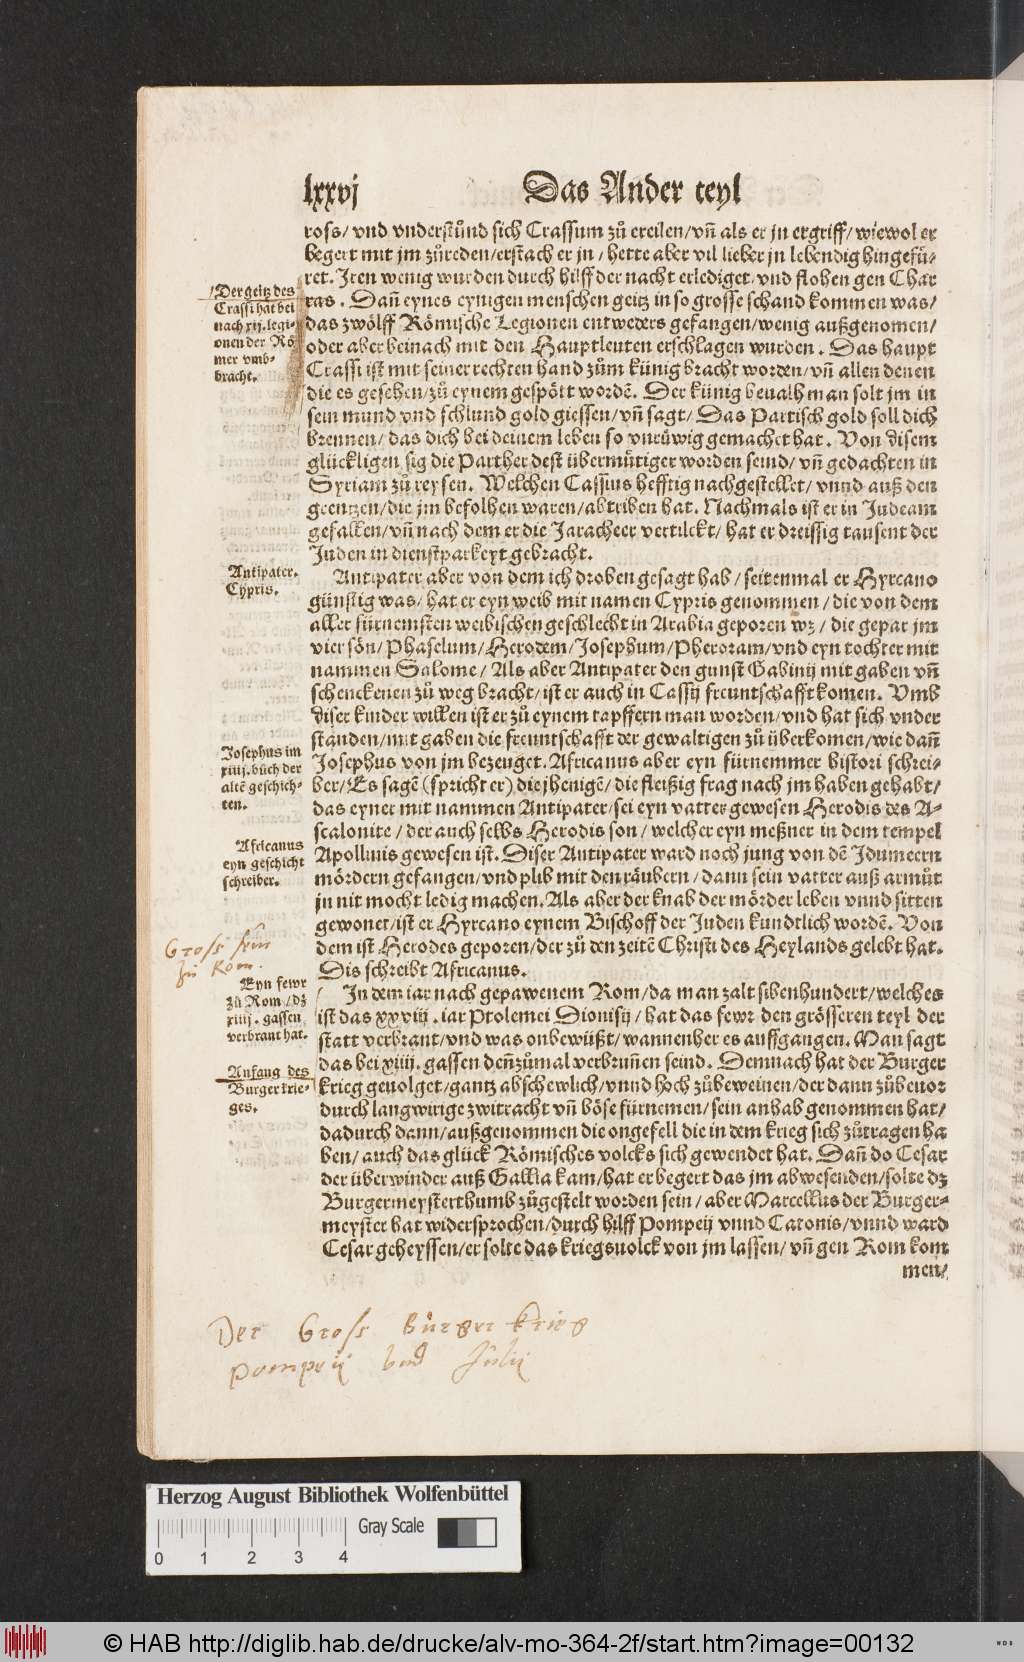 lxxvj Das Ander teyl
ross/ vnd vnderstůnd sich Crassum zů ereilen/ vñ als er jn ergriff/ wiewol er
begert mit jm zůreden/ erstach er jn / hette aber vil lieber jn lebendig hingefü-
ret. Iren wenig wurden durch hilff der nacht erlediget/ vnd flohen gen Char
ras . Dañ eynes eynigen menschen geitz in so grosse schand kommen was/
das zwölff Römische Legionen entweders gefangen/ wenig außgenomen/
oder aber beinach mit den Hauptleuten erschlagen wurden . Das haupt
Crassi ist mit seiner rechten hand zům künig bracht worden/ vñ allen denen
die es gesehen/ zů eynem gespött wordē. Der künig beualh man solt jm in
sein mund vnd schlund gold giessen/ vñ sagt/ Das Partisch gold soll dich
brennen/ das dich bei deinem leben so vnrüwig gemachet hat . Von disem
glückligen sig die Parther dest übermůtiger worden seind/ vñ gedachten in
Syriam zů reysen. Welchen Cassius hefftig nachgestellet/ vnnd auß den
grentzen/ die jm befolhen waren/ abtriben hat. Nachmals ist er in Judeam
gefallen/ vñ nach dem er die Jaracheer vertilckt/ hat er dreissig tausent der
Juden in dienstparkeyt gebracht.
Antipater aber von dem ich droben gesagt hab/ seitenmal er Hyrcano
günstig was/ hat er eyn weib mit namen Cypris genommen / die von dem
aller fürnemsten weibischen geschlecht in Arabia geporen wz / die gepar jm
vier sön/ Phaselum/ Herodem/ Josephum/ Pheroram/ vnd eyn tochter mit
nammen Salome/ Als aber Antipater den gunst Gabinij mit gaben vñ
schenckenen zů weg bracht/ ist er auch in Cassij freuntschafft komen. Vmb
diser kinder willen ist er zů eynem tapffern man worden/ vnd hat sich vnder
standen/ mit gaben die freuntschafft der gewaltigen zů überkomen/ wie dañ
Josephus von jm bezeuget. Africanus aber eyn fürnemmer histori schrei-
ber/ Es sagē (spricht er) die jhenigē/ die fleißig frag nach jm haben gehabt/
das eyner mit nammen Antipater/ sei eyn vatter gewesen Herodis des A-
scalonite / der auch selbs Herodis son/ welcher eyn meßner in dem tempel
Apollinis gewesen ist. Diser Antipater ward noch jung von dē Idumeern
mördern gefangen/ vnd plib mit den räubern/ dann sein vatter auß armůt
jn nit mocht ledig machen. Als aber der knab der mörder leben vnnd sitten
gewonet/ ist er Hyrcano eynem Bischoff der Juden kundtlich wordē. Von
dem ist Herodes geporen/ der zů den zeitē Christi des Heylands gelebt hat.
Dis schreibt Africanus.
In dem iar nach gepawenem Rom/ da man zalt sibenhundert/ welches
ist das xxviij . iar Ptolemei Dionisij / hat das fewr den grösseren teyl der
statt verbrant/ vnd was onbewüßt/ wannenher es auffgangen. Man sagt
das bei xiiij. gassen deñzůmal verbruñen seind. Demnach hat der Burger
krieg geuolget/ gantz abschewlich/ vnnd hoch zůbeweinen/ der dann zůbeuor
durch langwirige zwitracht vñ böse fürnemen/ sein anhab genommen hat/
dadurch dann/ außgenommen die ongefell die in dem krieg sich zůtragen ha
ben/ auch das glück Römisches volcks sich gewendet hat. Dañ do Cesar
der überwinder auß Gallia kam/ hat er begert das jm abwesenden/ solte dz
Burgermeysterthumb zůgestelt worden sein / aber Marcellus der Burger-
meyster hat widersprochen/ durch hilff Pompeij vnnd Catonis/ vnnd ward
Cesar geheyssen/ er solte das kriegsuolck von jm lassen/ vñ gen Rom kom
men/
Der geitz des
Crassi hat bei
nach xij. legi-
onen der Rö
mer vmb-
bracht.
Antipater.
Cypris.
Josephus im
xiiij. bůch der
altē geschich-
ten.
Africanus
eyn geschicht
schreiber.
Gross feür
zu Rom.
Eyn fewr
zů Rom / dz
xiiij . gassen
verbrant hat.
Anfang des
Burger krie-
ges.
Der Gross Bürger krieg
Pompeij vnd Julij
Herzog August Bibliothek Wolfenbüttel
Gray Scale
0 1 2 3 4
© HAB http://diglib.hab.de/drucke/alv-mo-364-2f/start.htm?image=00132